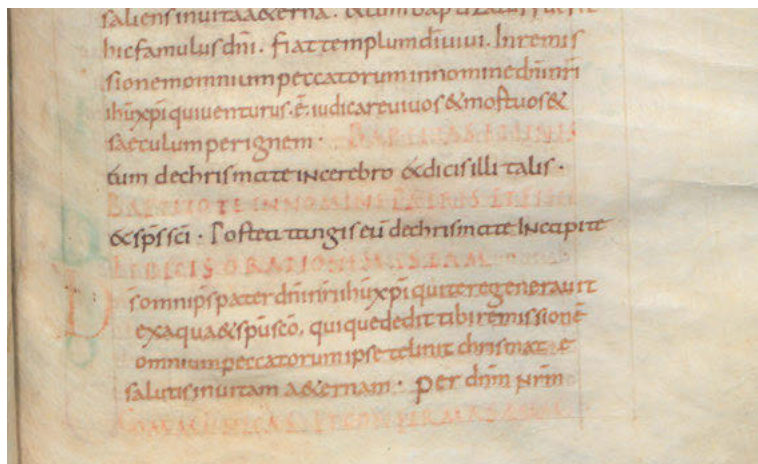 saliens in uita aeterna. & cum baptizatus fuerit
hic famulus dn̄i. fiat templum dī uiui. In remis
sionem omnium peccatorum in nomine dn̄i nr̄i
ihū xp̄i qui uenturus. ē. iudicare uiuos & mortuos &
saeculum per ignem.
tum de chrismate in cerebro & dicis illi talis.
BAPTIZO TE IN NOMINE PATRIS ET FILII
& sp̄s sc̄i. Postea tangis eū de chrismate In capite
ET DICIS ORATIONEM ISTAM
D̄s omnip̄s pater dn̄i nr̄i ihū xp̄i qui te regenerauit
ex aqua & sp̄u sc̄o, quique dedit tibi remissionē
omnium peccatorum ipse te linit chrismate
salutis in uitam a&ernam. per dn̄m nr̄m